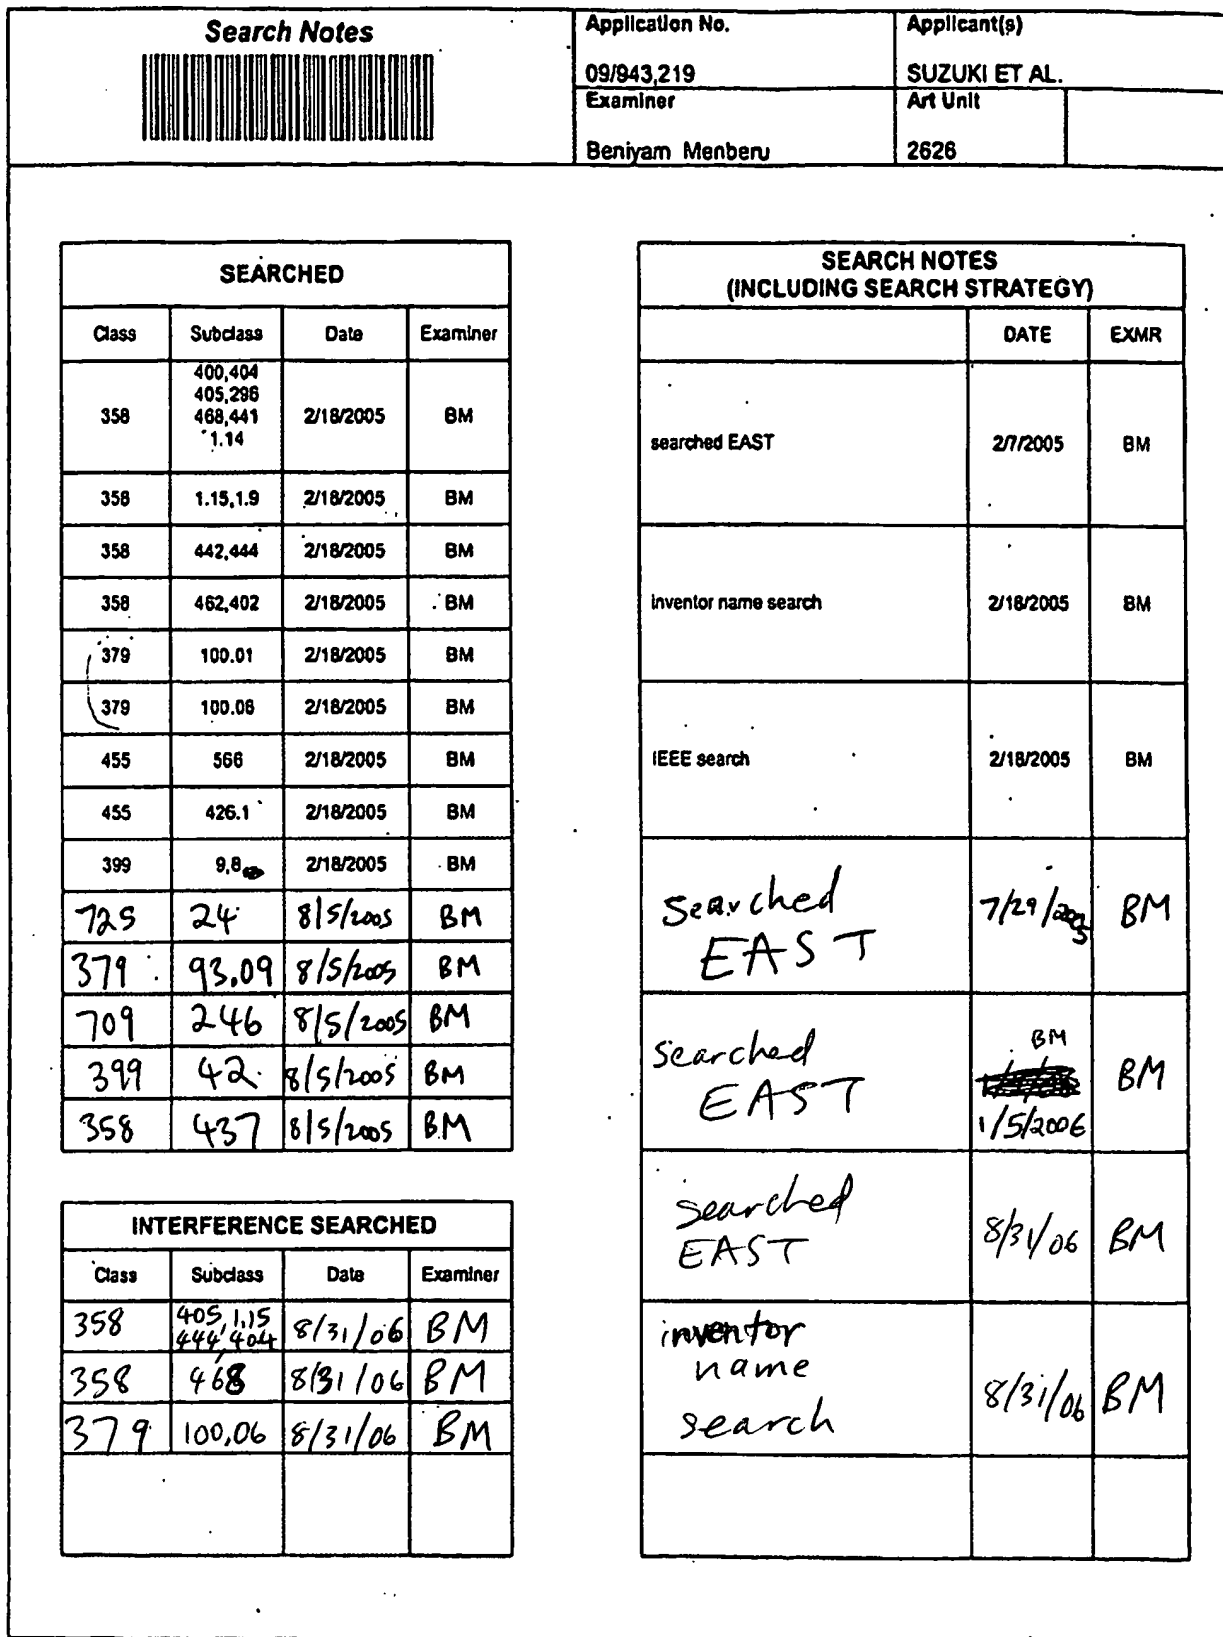 Search Notes
Application No.
Applicant(s)
09/943,219
SUZUKI ET AL.
Examiner
Art Unit
Beniyam Menberu
2626
SEARCHED
Class Subclass Date Examiner
358 400,404 405,296 468,441 1.14 2/18/2005 BM
358 1.15,1.9 2/18/2005 BM
358 442,444 2/18/2005 BM
358 462,402 2/18/2005 BM
379 100.01 2/18/2005 BM
379 100.06 2/18/2005 BM
455 566 2/18/2005 BM
455 426.1 2/18/2005 BM
399 9,8 2/18/2005 BM
725 24 8/5/2005 BM
379 93.09 8/5/2005 BM
709 246 8/5/2005 BM
399 42 8/5/2005 BM
358 437 8/5/2005 BM
INTERFERENCE SEARCHED
Class Subclass Date Examiner
358 405, 1.15 444, 404 8/31/06 BM
358 468 8/31/06 BM
379 100.06 8/31/06 BM
SEARCH NOTES
(INCLUDING SEARCH STRATEGY)
DATE EXMR
searched EAST 2/7/2005 BM
inventor name search 2/18/2005 BM
IEEE search 2/18/2005 BM
searched
EAST 7/29/2005 BM
searched
EAST BM 1/5/2006 BM
searched
EAST 8/31/06 BM
inventor
name
search 8/31/06 BM